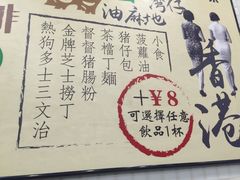 灣仔
油麻地
香港
小食
菠蘿油
豬仔包
茶檔丁麵
督督豬腸粉
金牌芝士撈丁
熱狗多士三文治
+¥8
可選擇任意
飲品1杯